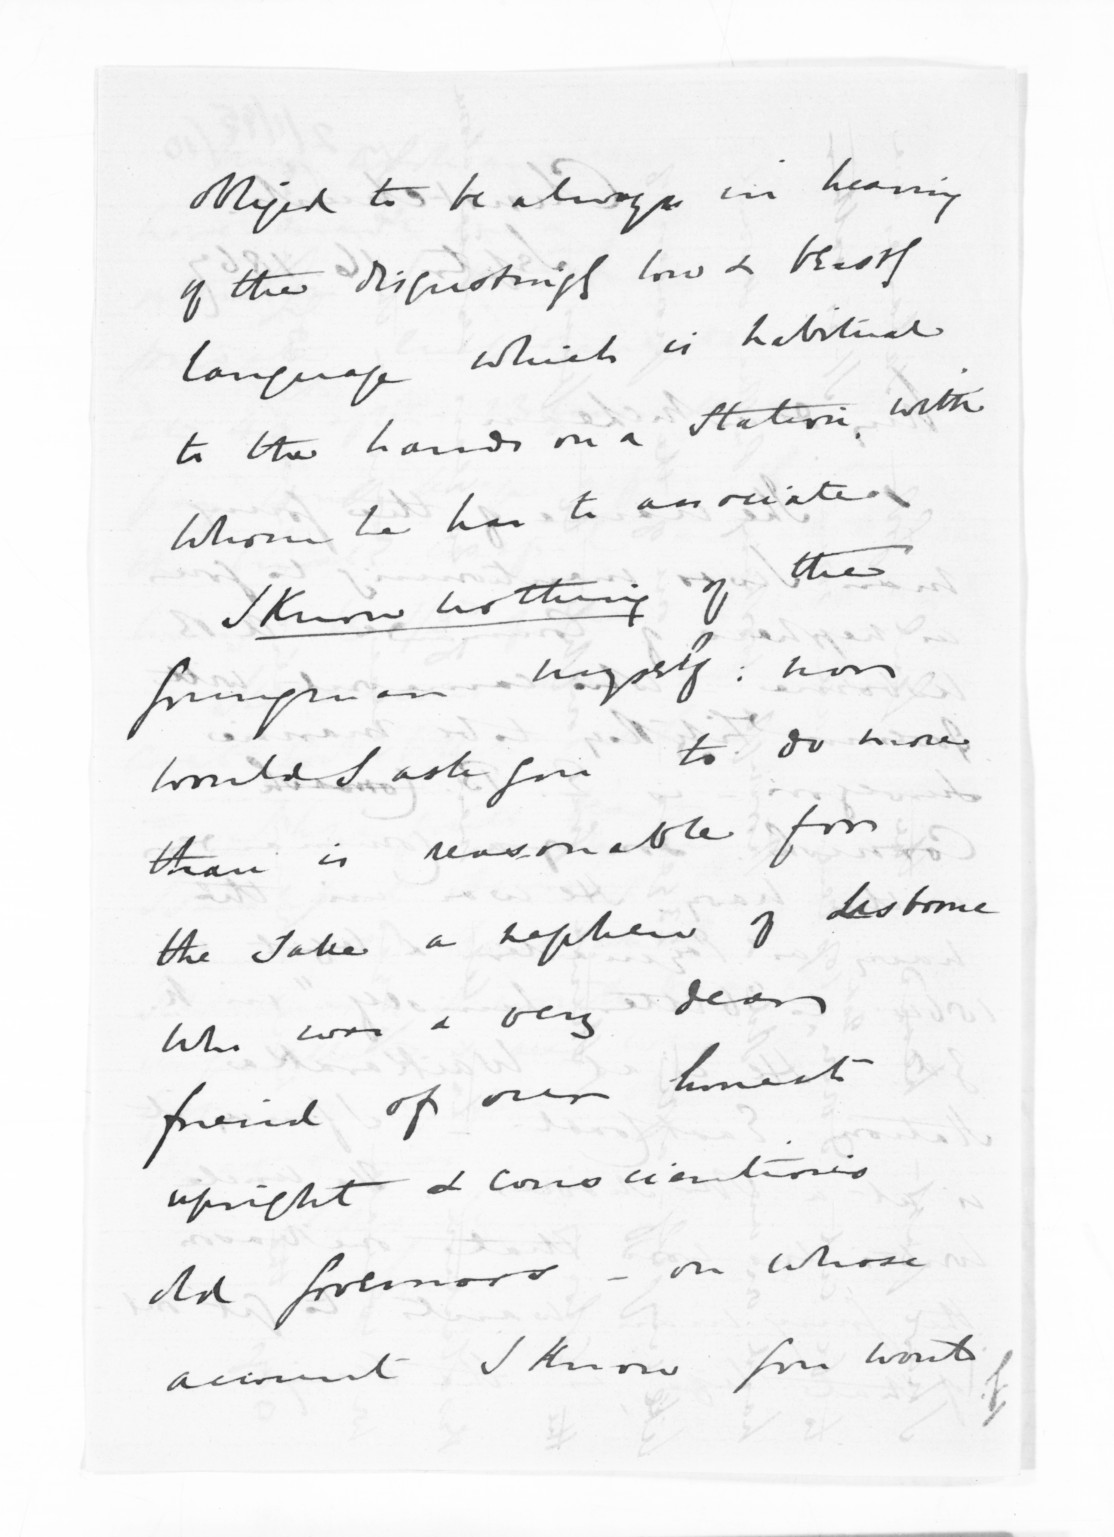 obliged to be always in hearing
of the disgustingly low & beastly
language which is habitual
to the hands on a Station, with
whom he has to associate
I know nothing of the
young man myself: nor
would I ask you to do more
than is reasonable for
the sake a nephew of
who was a very dear
friend of our honest
upright & conscientious
old Governor - on whose
account I know you wont